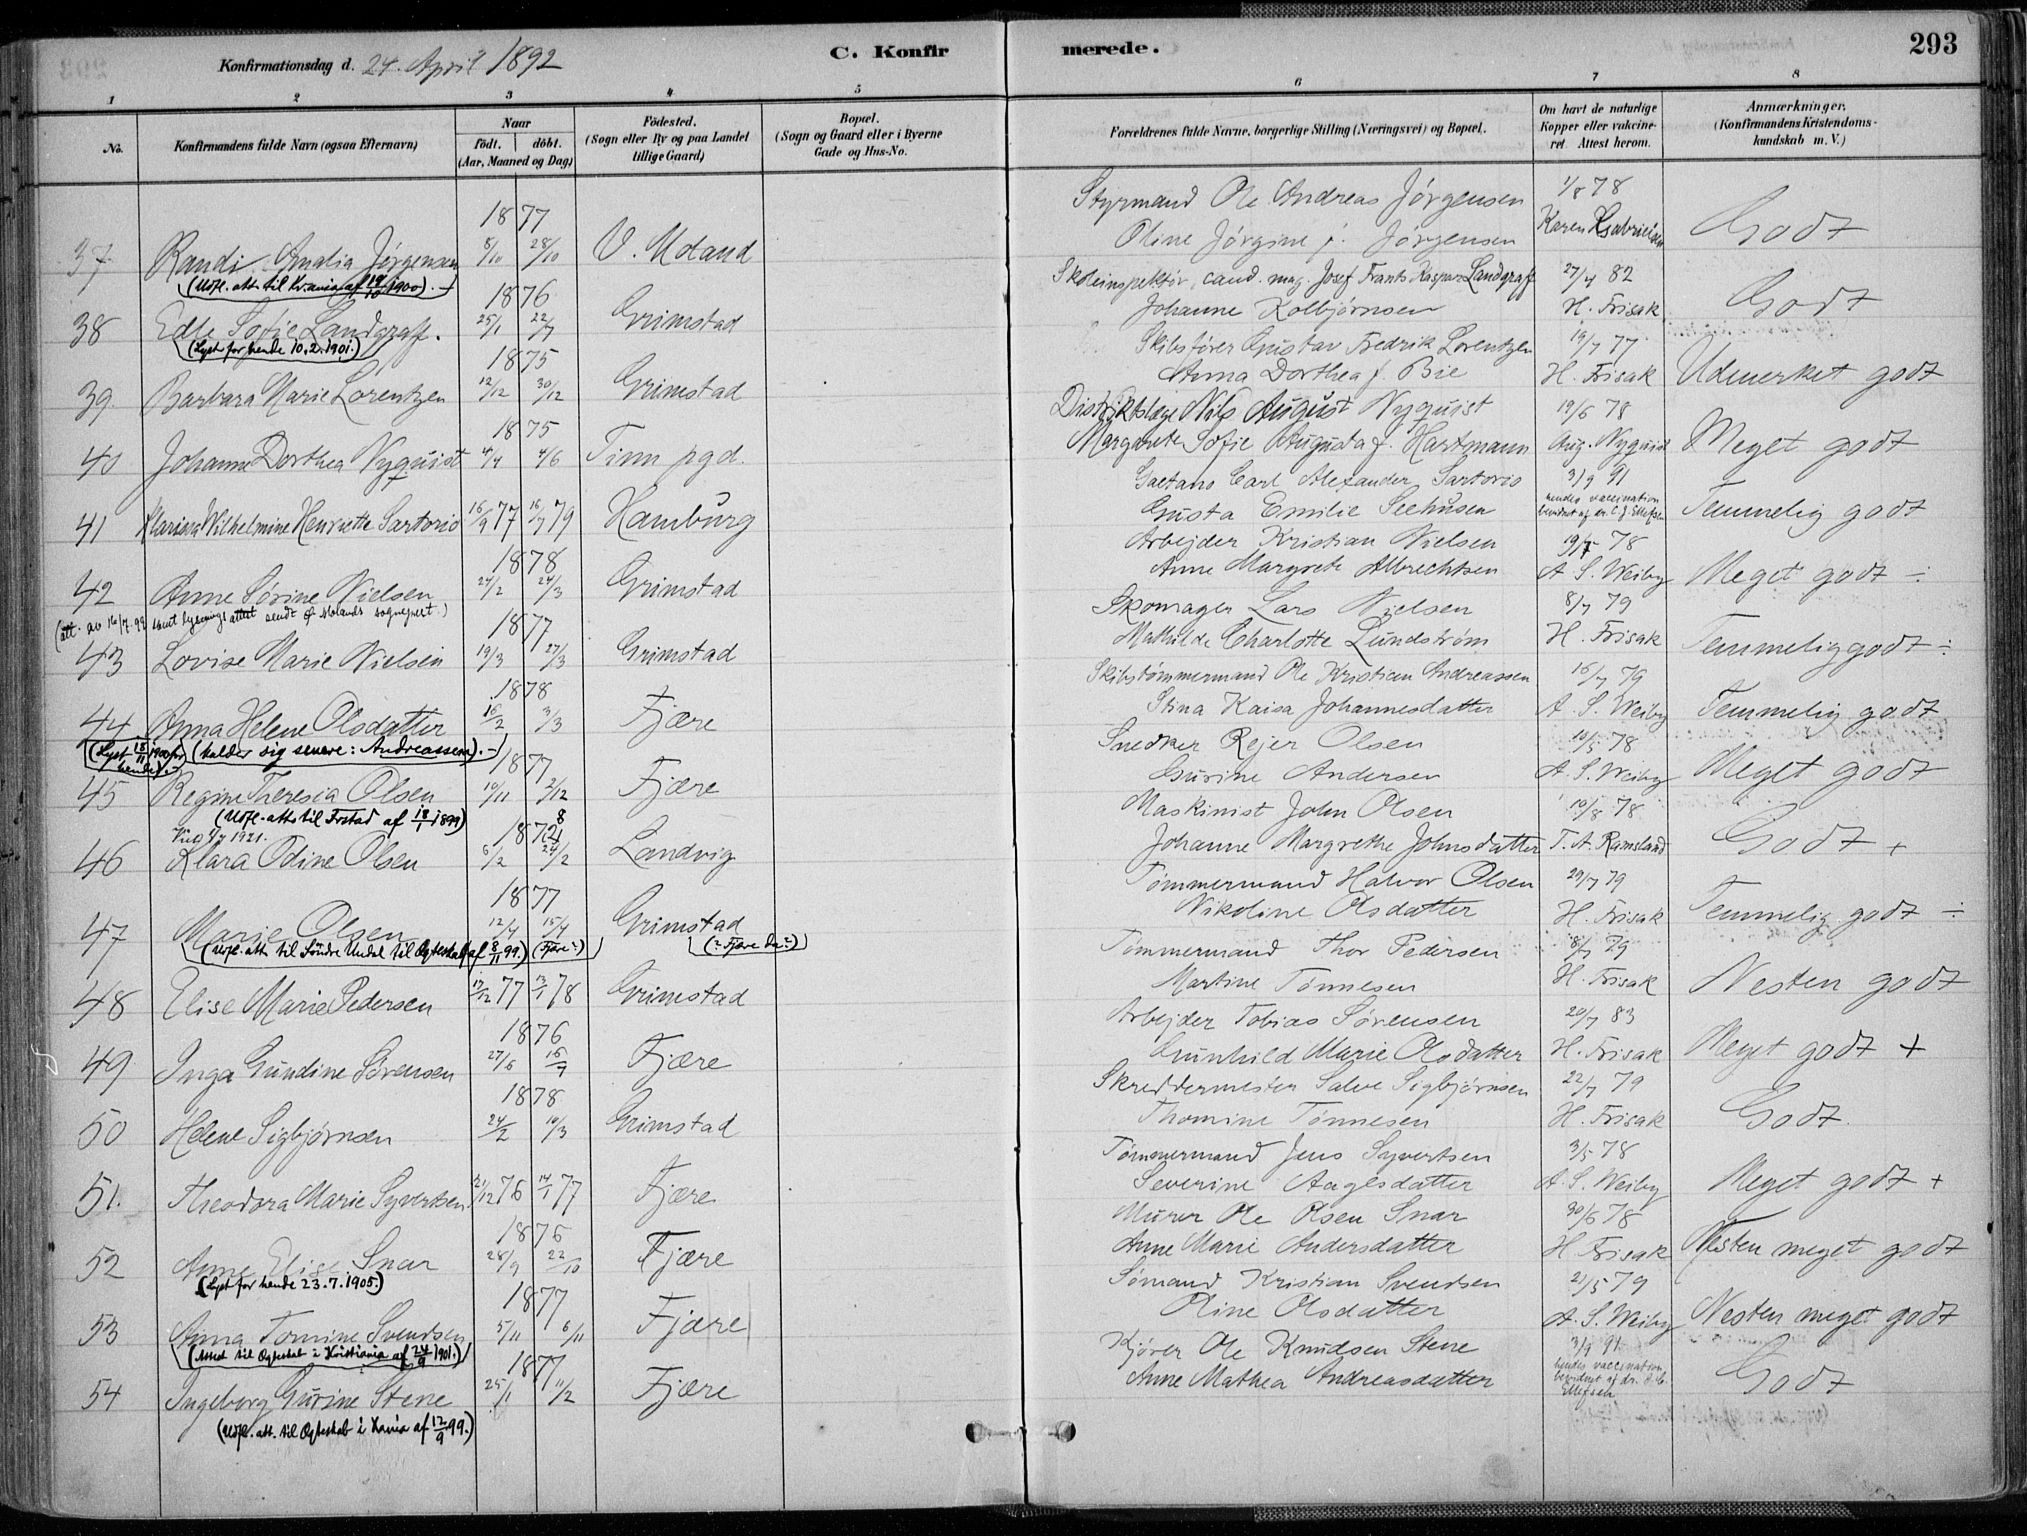 Konfirmationsdag d. 24. April 1892
C. Konfirmerede.
293
1 2 3 4 5 6 7 8
No.
Konfirmandens fulde Navn (ogsaa Efternavn)
Naar
födt. döbt.
(Aar, Maaned og Dag)
Födested.
(Sogn eller By og paa Landet
tillige Gaard)
Bopæl.
(Sogn og Gaard eller i Byerne
Gade og Hus-No.
Forældrenes fulde Navne, borgerlige Stilling (Næringsvei) og Bopæl.
Om havt de naturlige
Kopper eller vakcine-
ret. Attest herom.
Anmærkninger.
(Konfirmandens Kristendoms-
kundskab m. V.)
1877
37 Randi Amalia Jørgensen 8/10 28/10 V. Moland
(Udfl. att. til Kr.ania af 19/10 1900).
Styrmand Ole Andreas Jørgensen 1/8 78
Oline Jørgine f. Jørgensen Karen Gabrielsen Godt
1876
38 Edle Sofie Landgraff. 25/1 22/7 Grimstad
(Lyst for hende 10.2.1901.)
Skoleinspektør, cand. mag. Josef Frants Kaspar Landgraff 27/4 82
Johanne Kolbjørnsen H. Frisak Godt
1875
39. Barbara Marie Lorentzen 12/12 30/12 Grimstad
Skibsfører Gustav Fredrik Lorentzen 19/7 77
Anna Dorthea f. Bie H. Frisak Udmerket godt
1875
40 Johanne Dorthea Nyquist 4/4 4/6 Tinn pgd.
Distriktslæge Nils August Nyquist 19/6 78
Margarete Sofie Augusta f. Hartmann Aug. Nyquist Meget godt
41 Mariana Wilhelmine Henriette Sartorio 16/9 77 16/7 79 Hamburg
Gaetano Carl Alexander Sartorio 3/9 91
Gusta Emilie Seehusen hendes vaccination
bevidnet af dr. C. J. Ellefsen Temmelig godt
1878
42 Anne Sørine Nielsen 24/2 24/3 Grimstad
(att. av 16/7.99 samt lysningsattest sendt Ø. Molands sogneprest.)
Arbejder Kristian Nielsen 19/7 78
Anne Margrete Albrechtsen A. S. Weiby Meget godt ÷
1877
43 Lovise Marie Nielsen 19/3 27/3 Grimstad
Skomager Lars Nielsen 8/7 79
Mathilde Charlotte Lundstrøm H. Frisak Temmelig godt ÷
1878
44 Anna Helene Olsdatter 16/2 3/3 Fjære
(Lyst 18/11 1900 for hende). (kalder sig senere: Andreassen).
Skibstømmermand Ole Kristian Andreassen 16/7 79
Stina Kaisa Johannesdatter A. S. Weiby Temmelig godt
1877
45 Regine Theresia Olsen 10/11 2/12 Fjære
(Udfl.-atts til Frstad af 18/1 1899)
Snedker Rejer Olsen 10/5 78
Gurine Andersen A. S. Weiby Meget godt
Viet 4/7 1921.
1878
46 Klara Odine Olsen 6/2 24/2 Landvig
Maskinist John Olsen 10/8 78
Johanne Margrethe Johnsdatter T. A. Ramsland Godt +
1877
47 Marie Olsen 12/4 15/4 Grimstad
(Udfl.-att. til Söndre Undal til Ægteskab af 8/11 99.) (Fjære?) (? Fjære da ?)
Tømmermand Halvor Olsen 29/7 79
Nikoline Olsdatter H. Frisak Temmelig godt ÷
48 Elise Marie Pedersen 17/12 77 13/1 78 Grimstad
Tømmermand Thor Pedersen 8/7 79
Martine Tønnesen H. Frisak Nesten godt
1876
49 Inga Gundine Sørensen 27/6 16/7 Fjære
Arbejder Tobias Sørensen 20/7 83
Gunhild Marie Olsdatter H. Frisak Meget godt +
1878
50 Helene Sigbjørnsen 24/2 10/3 Grimstad
Skreddermester Salve Sigbjørnsen 22/7 79
Thomine Tønnesen H. Frisak Godt.
51. Theodora Marie Syvertsen 21/12 76 14/1 77 Fjære
Tømmermand Jens Syvertsen 3/5 78
Severine Aagesdatter A. S. Weiby Meget godt +
1876
52 Anne Elise Snar 28/9 22/10 Fjære
(Lyst for hende 23.7.1905.)
Murer Ole Olsen Snar 30/6 78
Anne Marie Andersdatter H. Frisak Nesten meget godt
1877
53 Anna Tomine Svendsen 5/11 6/11 Fjære
(Attest til Ægteskab i Kristiania af 24/9 1901.)
Sømand Kristian Svendsen 21/5 79
Oline Olsdatter A. S. Weiby Nesten meget godt
1877
54 Ingeborg Gurine Stene 25/1 11/2 Fjære
(Udfl. att. til Ægteskab i Kania af 12/9 99.)
Kjører Ole Knudsen Stene 3/9 91
Anne Mathea Andreasdatter hendes vaccination
bevidnet af dr. Ellefsen Godt